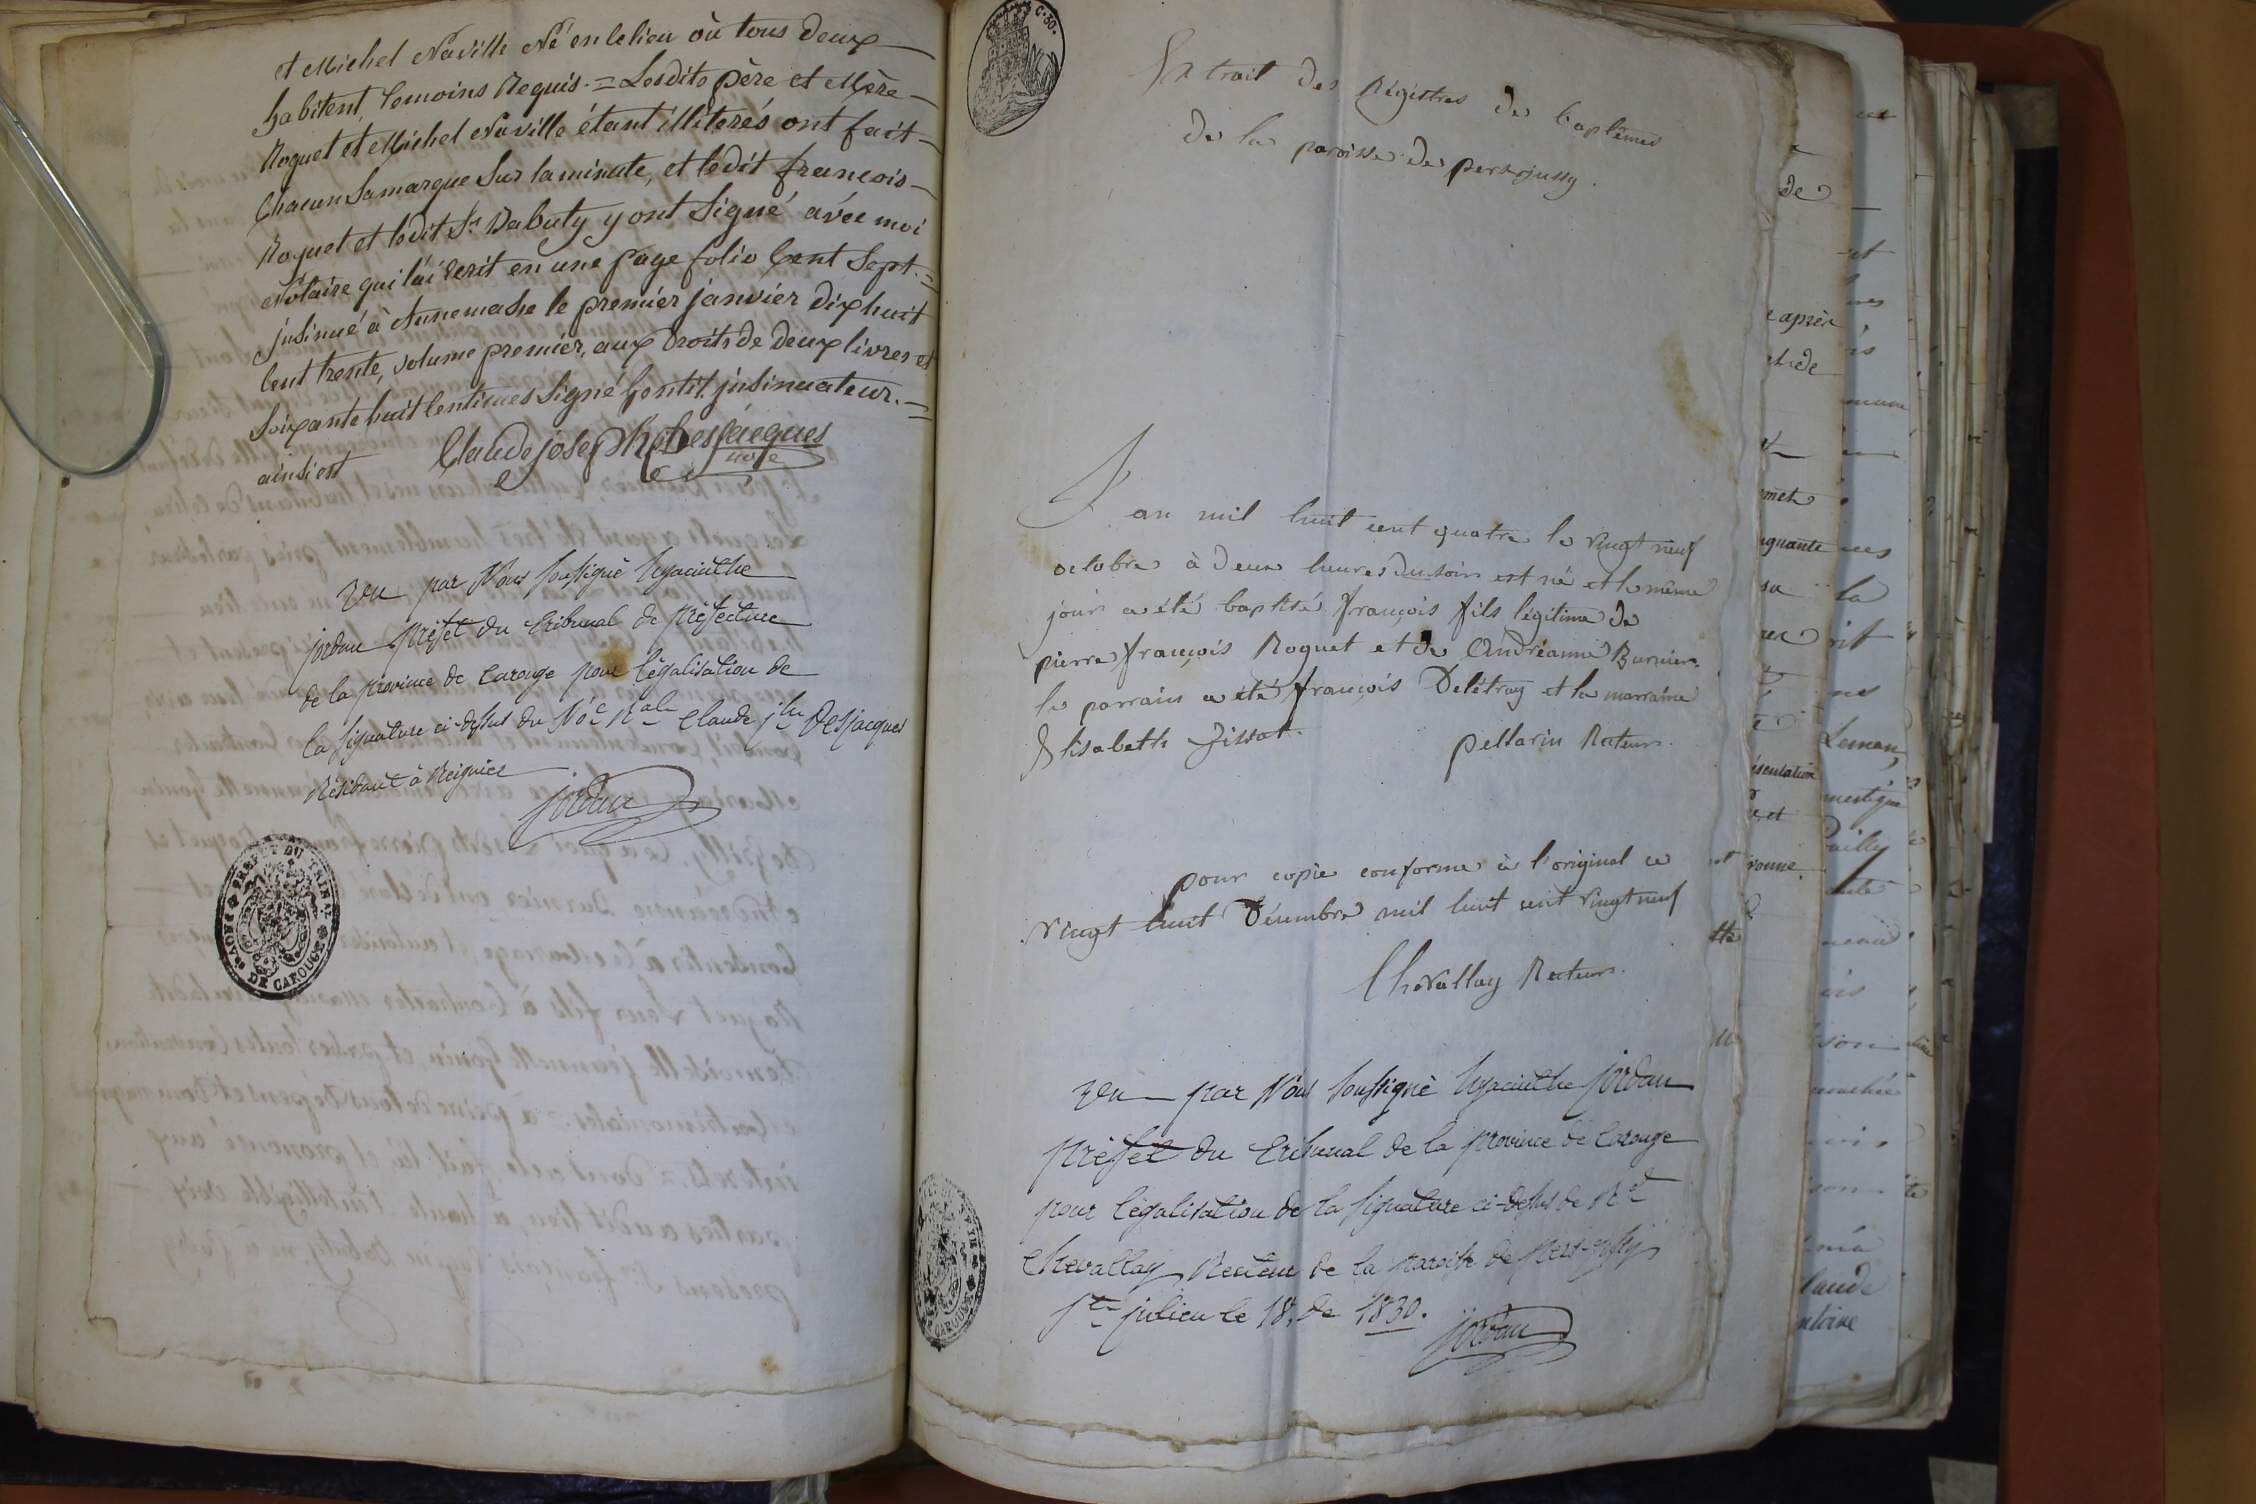 et Michel Naville Né en le lieu où tous deux
habitent, temoins Requis. = Lesdits père et Mère
Roguet et Michel Naville étant illiterés ont fait
Chacun Sa marque Sur la minute, et ledit francois
Roguet et ledit Sr Dabuty y ont Signé avec moi
Notaire qui l'ai ecrit en une page folio Cent Sept. =
insinué à Annemasse le premier janvier dix huit
Cent trente, volume premier, aux droits de deux livres et
Soixante huit Centimes Signé Gentil insinuateur. =
ainsi est Claude joseph Desjacques
nore
Vu par Nous Soussigné hyacinthe
jordan Préfet du Tribunal de Préfecture
de la province de Carouge pour légalisation de
la signature ci-dessus du No.e R.al Claude j.ph Desjacques
Résidant à Reignier
jordan
PREFET DU TRIB.
PROV.
DE CAROUGE
C. 30.
Extrait des Régistres de baptêmes
de la paroisse de persjussy.
L'an mil huit cent quatre le vingt neuf
octobre à deux heures du soir est né et le même
jour a été baptisé françois fils légitime de
pierre françois Roguet et de Andréanne Burnier.
le parrain a été françois Delétraz et la marraine
Elisabeth Jissot. pellarin Recteur.
pour copie conforme à l'original ce
vingt huit Décembre mil huit cent vingt neuf
Chevallay Recteur.
Vu par Nous Soussigné hyacinthe jordan
préfet du Tribunal de la province de Carouge
pour légalisation de la signature ci-dessus de Rd
Chevallay Recteur de la Paroisse de Pers-jussy
St. julien le 18. de 1830.
jordan